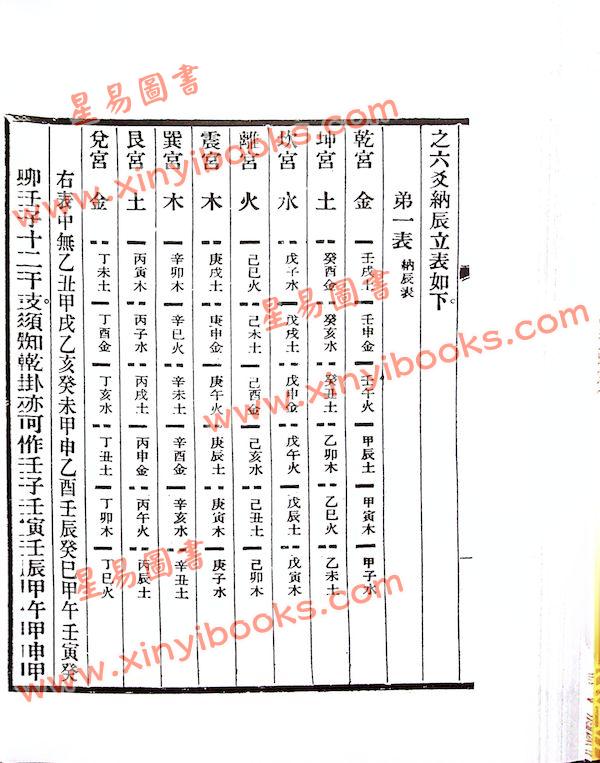 之六爻納辰立表如下。
弟一表 納辰表
乾宮 金 壬戌土 壬申金 壬午火 甲辰土 甲寅木 甲子水
坤宮 土 癸酉金 癸亥水 癸丑土 乙卯木 乙巳火 乙未土
坎宮 水 戊子水 戊戌土 戊申金 戊午火 戊辰土 戊寅木
離宮 火 己巳火 己未土 己酉金 己亥水 己丑土 己卯木
震宮 木 庚戌土 庚申金 庚午火 庚辰土 庚寅木 庚子水
巽宮 木 辛卯木 辛巳火 辛未土 辛酉金 辛亥水 辛丑土
艮宮 土 丙寅木 丙子水 丙戌土 丙申金 丙午火 丙辰土
兌宮 金 丁未土 丁酉金 丁亥水 丁丑土 丁卯木 丁巳火
右表中無乙丑甲戌乙亥癸未甲申乙酉壬辰癸巳甲午壬寅癸
卯壬子十二干支。須知乾卦亦可作壬子壬寅壬辰甲午甲申甲
星易圖書
www.xinyibooks.com
星易圖書
www.xinyibooks.com
星易圖書
www.xinyibooks.com